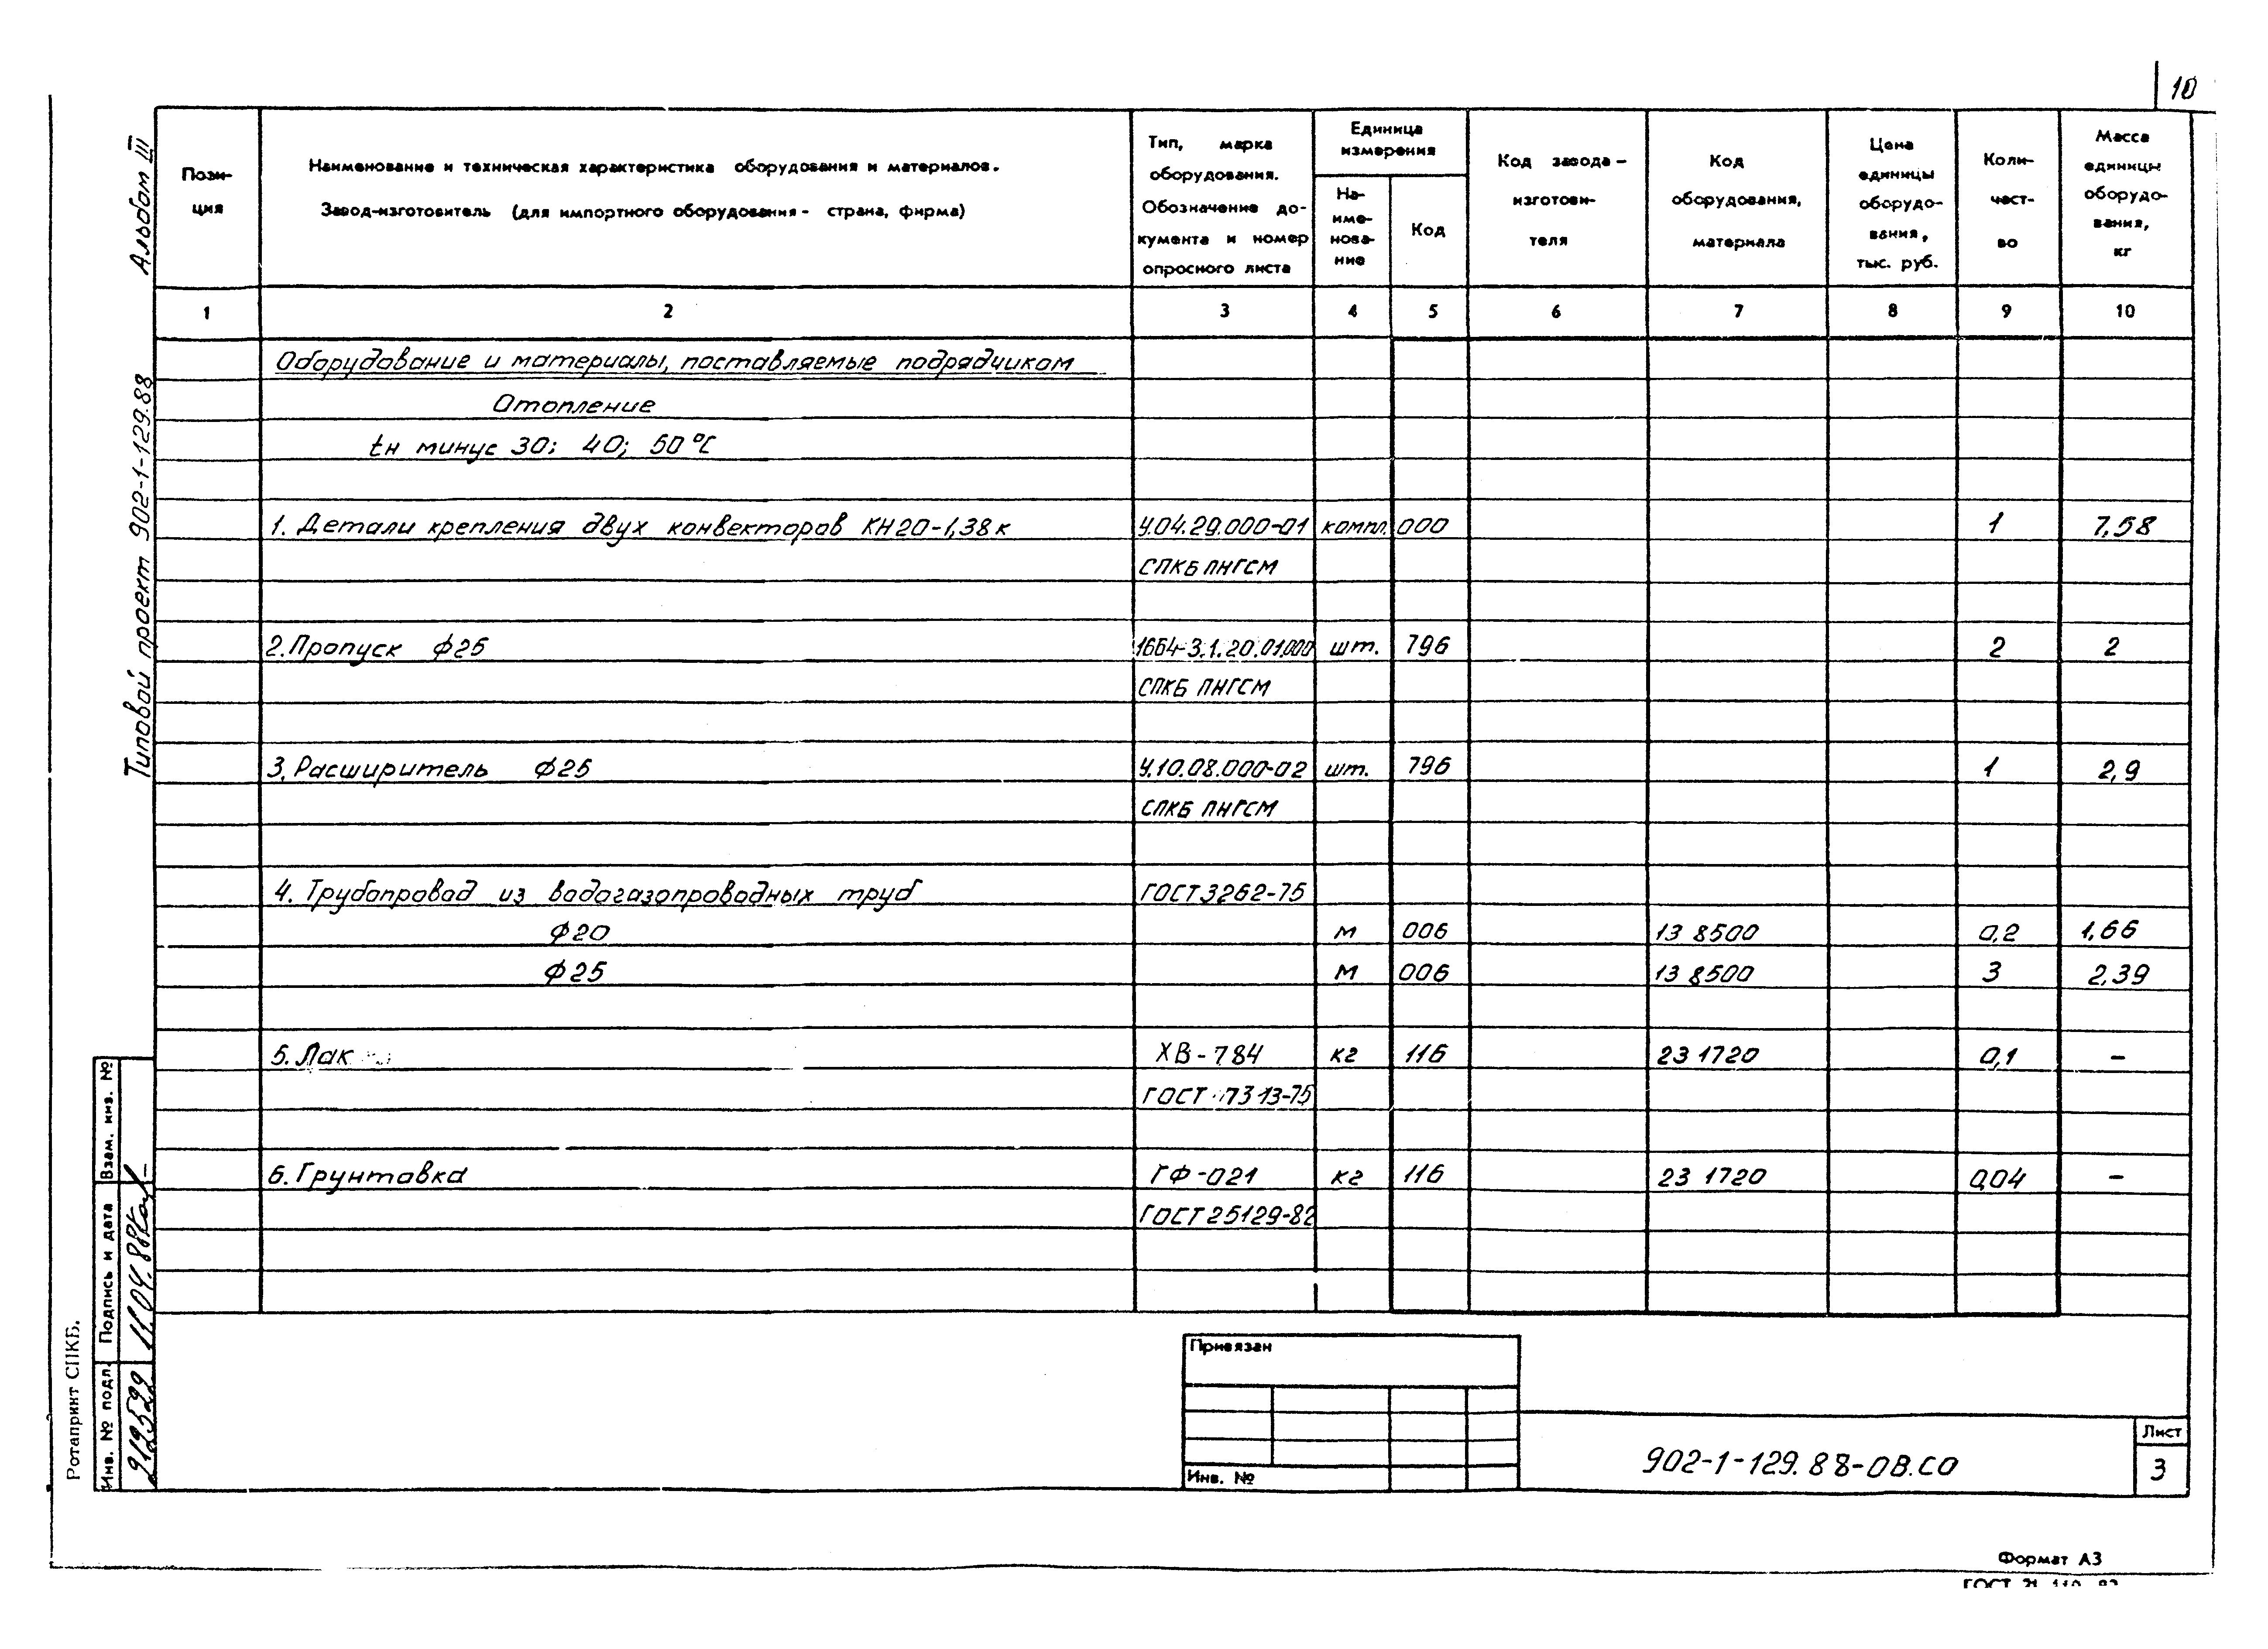 10
Альбом III
Типовой проект 902-1-129.88
Пози-
ция
Наименование и техническая характеристика оборудования и материалов.
Завод-изготовитель (для импортного оборудования - страна, фирма)
Тип, марка
оборудования.
Обозначение до-
кумента и номер
опросного листа
Единица
измерения
На-
име-
нова-
ние
Код
Код завода-
изготови-
теля
Код
оборудования,
материала
Цена
единицы
оборудо-
вания,
тыс. руб.
Коли-
чест-
во
Масса
единицы
оборудо-
вания,
кг
1 2 3 4 5 6 7 8 9 10
Оборудование и материалы, поставляемые подрядчиком
Отопление
tн минус 30; 40; 50°С
1. Детали крепления двух конвекторов КН20-1,38к У.04.29.000-01 компл. 000 1 7,58
СПКБ ПНГСМ
2. Пропуск ф25 1664-3.1.20.01.000 шт. 796 2 2
СПКБ ПНГСМ
3. Расширитель ф25 У.10.08.000-02 шт. 796 1 2,9
СПКБ ПНГСМ
4. Трубопровод из водогазопроводных труб ГОСТ 3262-75
ф20 м 006 13 8500 0,2 1,66
ф25 м 006 13 8500 3 2,39
5. Лак ХВ-784 кг 116 23 1720 0,1 –
ГОСТ 7313-75
6. Грунтовка ГФ-021 кг 116 23 1720 0,04 –
ГОСТ 25129-82
Взам. инв. №
Подпись и дата
11.04.88
Инв. № подл.
Ротапринт СПКБ.
Привязан
Инв. №
902-1-129.88-ОВ.СО
Лист
3
Формат А3